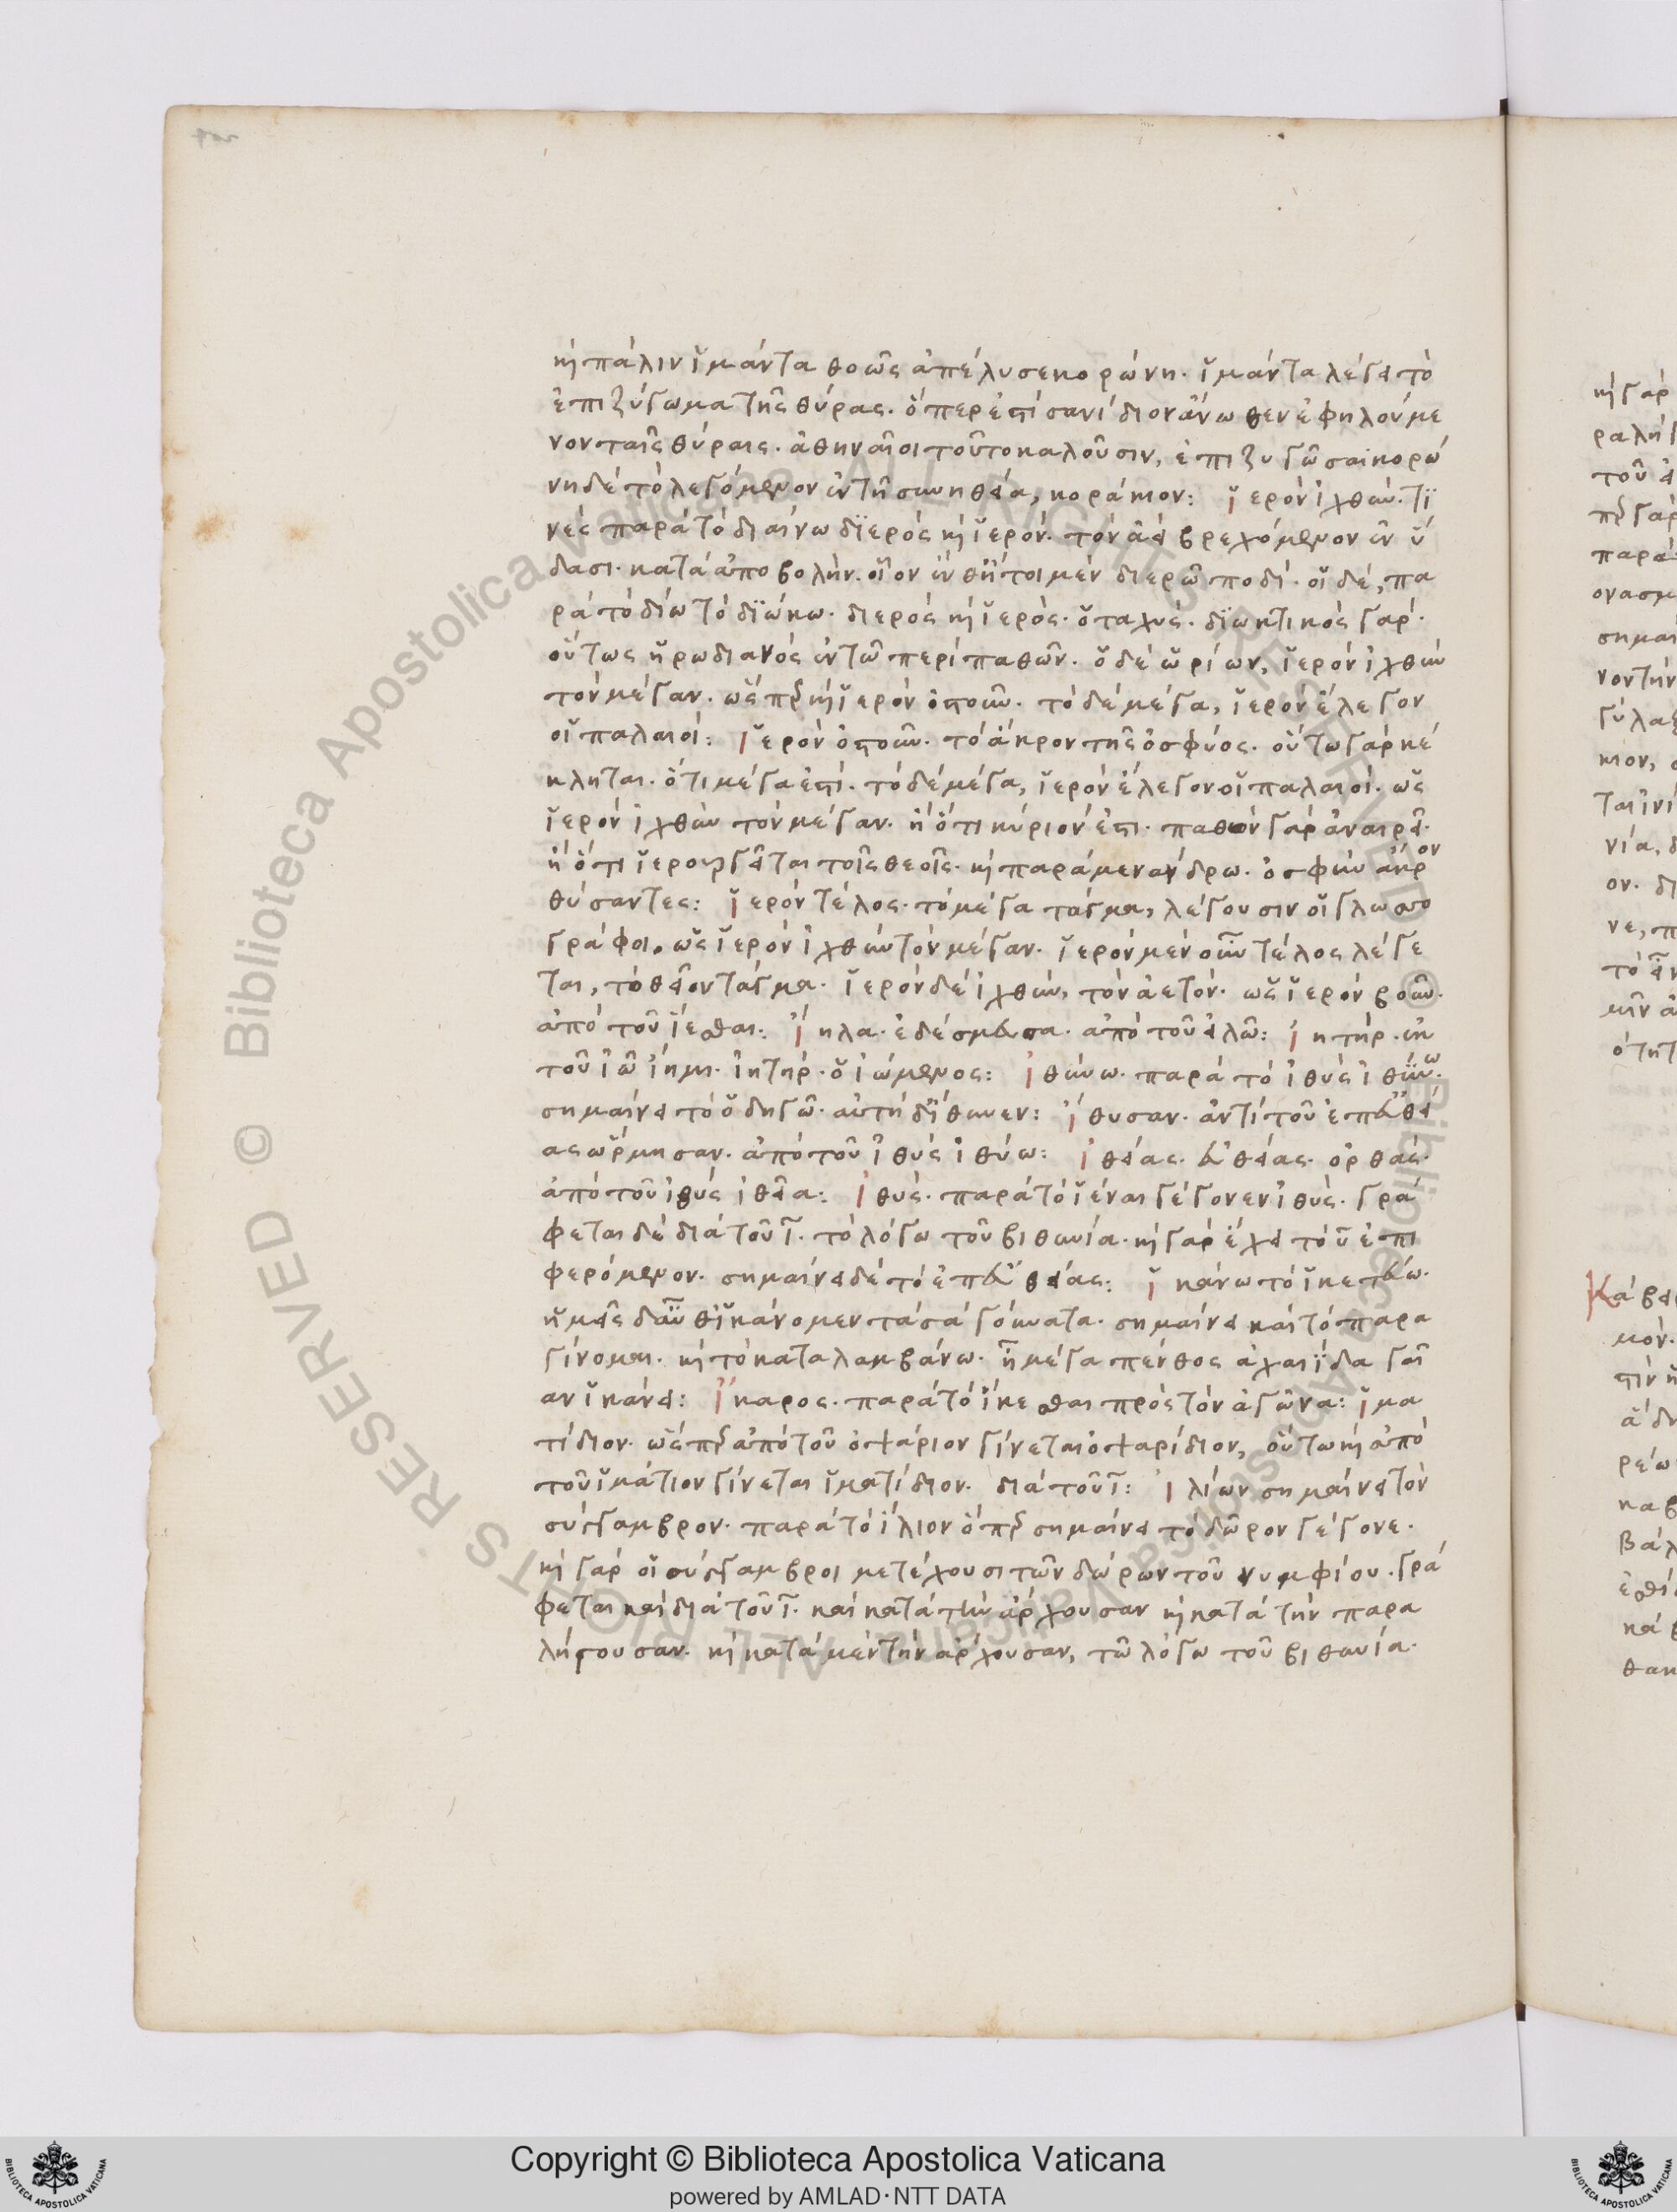 κὴ πάλιν ἱμάντα θοῶς ἀπέλυσε κορώνη· ἱμάντα λέγει τὸ
ἐπιζύγωμα τῆς θύρας· ὅπερ ἐστὶ σανίδιον ἄνωθεν ἐφηλούμε
νον ταῖς θύραις· ἀθηναῖοι τοῦτο καλοῦσιν, ἐπιζυγῶσαι κορώ
νη δὲ τὸ λεγόμενον ἐν τῆ συνηθεία, κοράκιον: ἱερὸν ἰχθύν· τι
νὲς παρὰ τὸ διαίνω διερὸς κὴ ἱερόν· τὸν ἀεὶ βρεχόμενον ἐν ὕ
δασι· κατὰ ἀποβολήν· οἷον ἔνθ ἤτοι μὲν διερῶ ποδί· οἱ δὲ, πα
ρὰ τὸ δίω τὸ διώκω· διερὸς κὴ ἱερὸς· ὁ ταχύς· διωκτικὸς γάρ·
οὕτως ἡρωδιανὸς ἐν τῶ περὶ παθῶν· ὁ δὲ ὠρίων, ἱερὸν ἰχθὺν
τὸν μέγαν· ὥσπερ κὴ ἱερὸν ὀστοῦν· τὸ δὲ μέγα, ἱερὸν ἔλεγον
οἱ παλαιοί: ἱερὸν ὀστοῦν· τὸ ἄκρον τῆς ὀσφύος· οὕτω γὰρ κέ
κληται· ὅτι μέγα ἐστί· τὸ δὲ μέγα, ἱερὸν ἔλεγον οἱ παλαιοί· ὡς
ἱερὸν ἰχθὺν τὸν μέγαν· ἢ ὅτι κύριόν ἐστι· παθὸν γὰρ ἀναιρεῖ·
ἢ ὅτι ἱερουργεῖται τοῖς θεοῖς· κὴ παρὰ μενάνδρω· ὀσφὺν ἄκρον
θύσαντες: ἱερὸν τέλος· τὸ μέγα τάγμα, λέγουσιν οἱ γλωσσο
γράφοι. ὡς ἱερὸν ἰχθὺν τὸν μέγαν· ἱερὸν μὲν οὖν τέλος λέγε
ται, τὸ θεῖον τάγμα· ἱερὸν δὲ ἰχθὺν, τὸν ἀετόν· ὡς ἱερὸν βοῦν·
ἀπὸ τοῦ ἵεσθαι: ἴηλα· ἐδέσμευσα· ἀπὸ τοῦ εἰλῶ: ἰητήρ· ἐκ
τοῦ ἰῶ ἴημι· ἰητὴρ· ὁ ἰώμενος: ἰθύνω· παρὰ τὸ ἰθὺς ἰθύνω·
σημαίνει τὸ ὁδηγῶ· αὐτὴ δ ἴθυνεν: ἴθυσαν· ἀντὶ τοῦ ἐπ εὐθεί
ας ὥρμησαν· ἀπὸ τοῦ ἰθὺς ἰθύω: ἰθείας· εὐθείας· ὀρθάς·
ἀπὸ τοῦ ἰθὺς ἰθεῖα: ἰθύς· παρὰ τὸ ἰέναι γέγονεν ἰθύς· γρά
φεται δὲ διὰ τοῦ ῑ· τὸ λόγω τοῦ βιθυνία· κὴ γὰρ ἔχει τὸ ῡ ἐπι
φερόμενον· σημαίνει δὲ τὸ ἐπ εὐθείας: ἱκάνω τὸ ἱκετεύω·
ἡμεῖς δ αὖθ ἱκάνομεν τὰ σὰ γόνατα· σημαίνει καὶ τὸ παρα
γίνομαι· κὴ τὸ καταλαμβάνω· ἦ μέγα πένθος ἀχαιΐδα γαῖ
αν ἱκάνει: ἴκαρος· παρὰ τὸ ἵκεσθαι πρὸς τὸν ἀγῶνα: ἱμα
τίδιον· ὥσπερ ἀπὸ τοῦ ὀψάριον γίνεται ὀψαρίδιον, οὕτω κὴ ἀπὸ
τοῦ ἱμάτιον γίνεται ἱματίδιον· διὰ τοῦ ῑ: ἰλίων σημαίνει τὸν
σύγγαμβρον· παρὰ τὸ ἴλιον ὅπερ σημαίνει τὸ δῶρον γέγονε·
κὴ γὰρ οἱ σύγγαμβροι μετέχουσι τῶν δώρων τοῦ νυμφίου· γρά
φεται καὶ διὰ τοῦ ῑ· καὶ κατὰ τὴν ἄρχουσαν κὴ κατὰ τὴν παρα
λήγουσαν· κὴ κατὰ μὲν τὴν ἄρχουσαν, τῶ λόγω τοῦ βιθυνία·
Copyright © Biblioteca Apostolica Vaticana
powered by AMLAD·NTT DATA